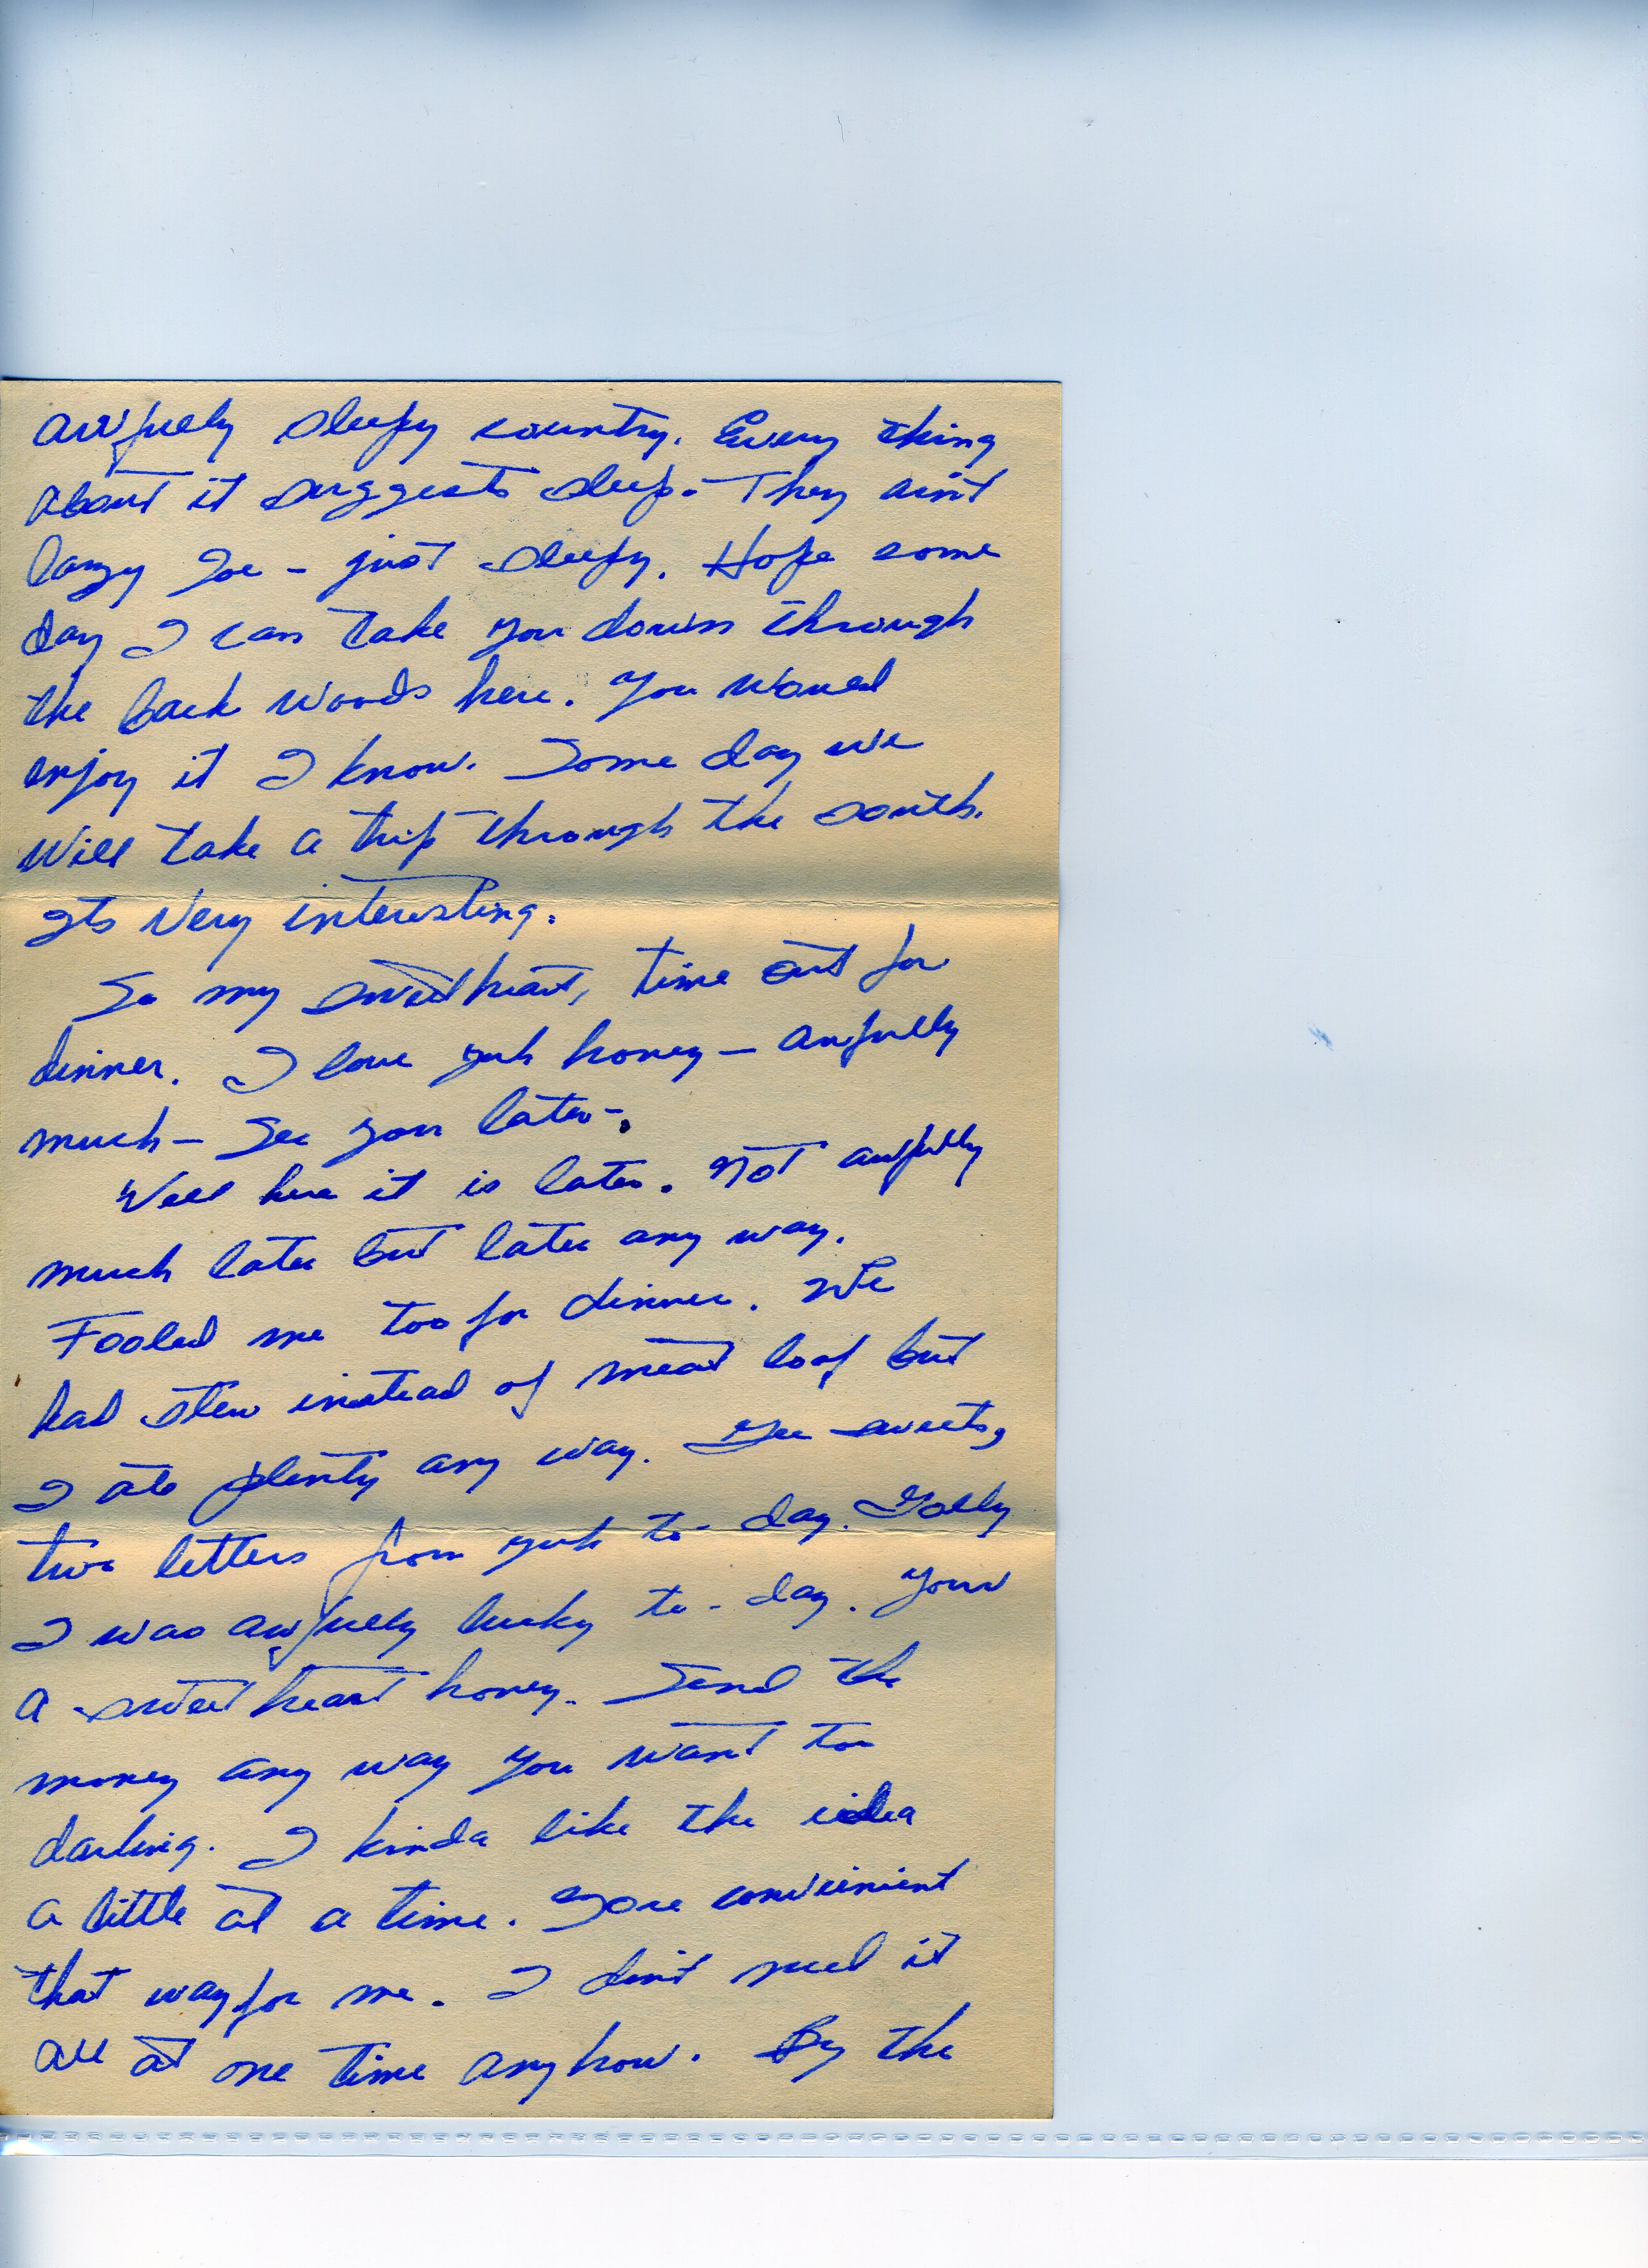 awfully sleepy country. Every thing
about it suggests sleep. They ain't
lazy Joe - just sleepy. Hope some
day I can take you down through
the back woods here. You would
enjoy it I know. Some day we
will take a trip through the south.
Its very interesting.
So my sweetheart, time out for
dinner. I love yuh honey - awfully
much - See you later -.
Well here it is later. Not awfully
much later but later any way.
Fooled me too for dinner. We
had stew instead of meat loaf but
I ate plenty any way. Gee sweets,
two letters from yuh to-day. Golly
I was awfully lucky to-day. Your
a sweetheart honey. Send the
money any way you want too
darling. I kinda like the idea
a little at a time. More convienient
that way for me. I don't need it
all at one time anyhow. By the